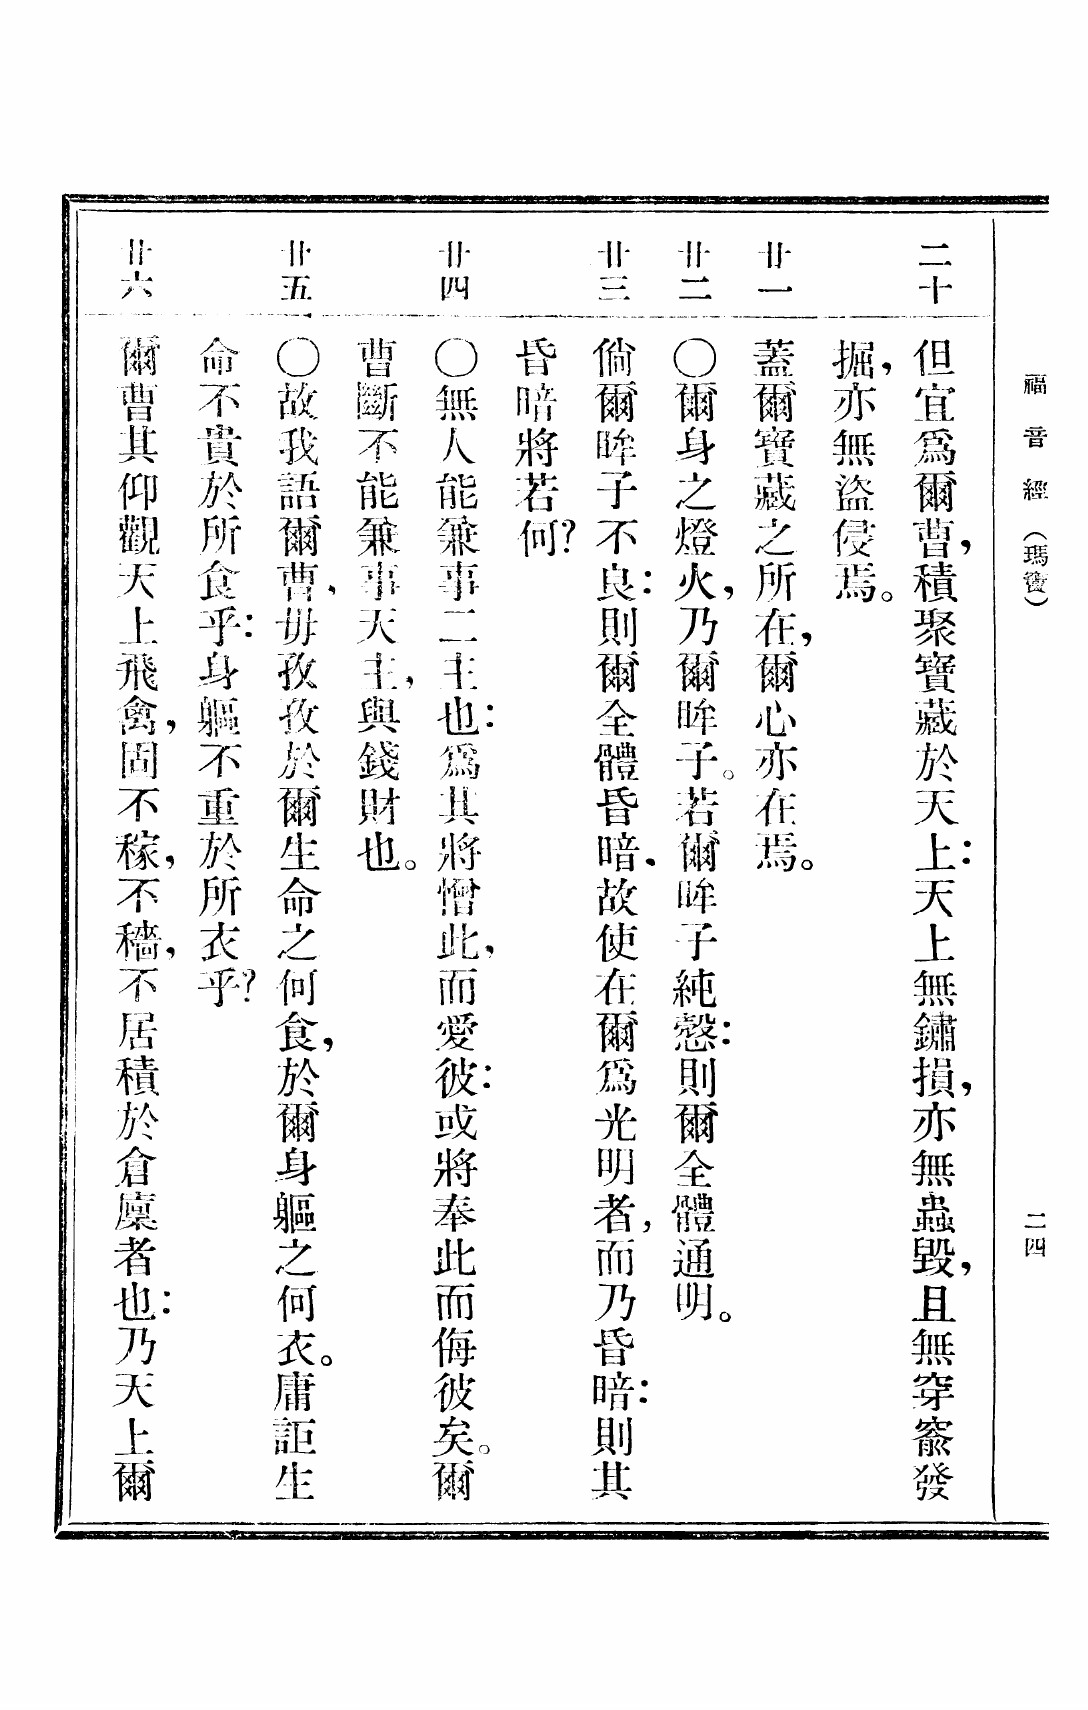 福音經（瑪竇） 二四
二十 但宜爲爾曹，積聚寶藏於天上：天上無鏽損，亦無蟲毀，且無穿窬發
掘，亦無盜侵焉。
廿一 蓋爾寶藏之所在，爾心亦在焉。
廿二 〇爾身之燈火，乃爾眸子。若爾眸子純慤：則爾全體通明。
廿三 倘爾眸子不良：則爾全體昏暗、故使在爾爲光明者，而乃昏暗：則其
昏暗將若何？
廿四 〇無人能兼事二主也：爲其將憎此，而愛彼：或將奉此而侮彼矣。爾
曹斷不能兼事天主，與錢財也。
廿五 〇故我語爾曹，毋孜孜於爾生命之何食，於爾身軀之何衣。庸詎生
命不貴於所食乎：身軀不重於所衣乎？
廿六 爾曹其仰觀天上飛禽，固不稼，不穡，不居積於倉廩者也：乃天上爾